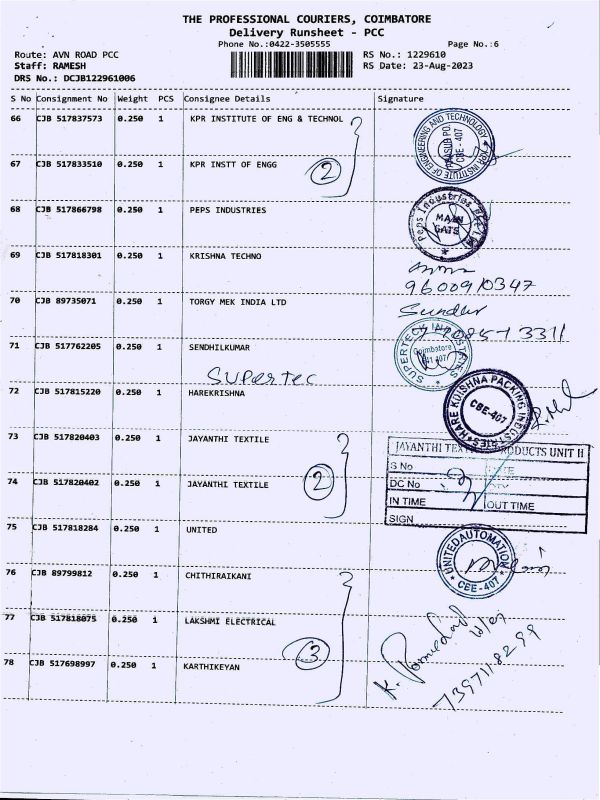 THE PROFESSIONAL COURIERS, COIMBATORE
Delivery Runsheet - PCC
Phone No.:0422-3505555 Page No.:6
Route: AVN ROAD PCC RS No.: 1229610
Staff: RAMESH RS Date: 23-Aug-2023
DRS No.: DCJB122961006
S No Consignment No Weight PCS Consignee Details Signature
66 CJB 517837573 0.250 1 KPR INSTITUTE OF ENG & TECHNOL
KPR INSTITUTE OF ENGINEERING AND TECHNOLOGY CBE - 407
67 CJB 517833510 0.250 1 KPR INSTT OF ENGG
2
68 CJB 517866798 0.250 1 PEPS INDUSTRIES
Peps Industries MAIN GATE
69 CJB 517818301 0.250 1 KRISHNA TECHNO
9600910347
70 CJB 89735071 0.250 1 TORGY MEK INDIA LTD
Sunder
71 CJB 517762205 0.250 1 SENDHILKUMAR
SUPERTECH INDUSTRIES Coimbatore 641 407
Supertec
72 CJB 517815220 0.250 1 HAREKRISHNA
HARE KRISHNA PACKING INDUSTRIES CBE-407
73 CJB 517820403 0.250 1 JAYANTHI TEXTILE
JAYANTHI TEXTILE PRODUCTS UNIT II
S No DATE
74 CJB 517820402 0.250 1 JAYANTHI TEXTILE
2
DC No
IN TIME OUT TIME
SIGN
75 CJB 517818284 0.250 1 UNITED
UNITED AUTOMATION CBE-407
76 CJB 89799812 0.250 1 CHITHIRAIKANI
77 CJB 517818075 0.250 1 LAKSHMI ELECTRICAL
3
78 CJB 517698997 0.250 1 KARTHIKEYAN
7397118299